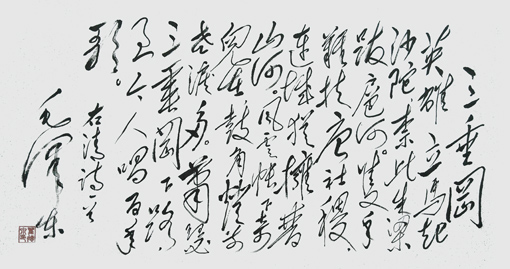 三垂岡
英雄立馬起
沙陀,奈此朱梁
跋扈何。隻手
難扶唐社稷,
連城猶擁晉
山河。風雲帳下奇
兒在,鼓角燈前
老淚多。蕭瑟
三垂岡下路,
至今人唱百年
歌。
右清詩一首
毛澤東